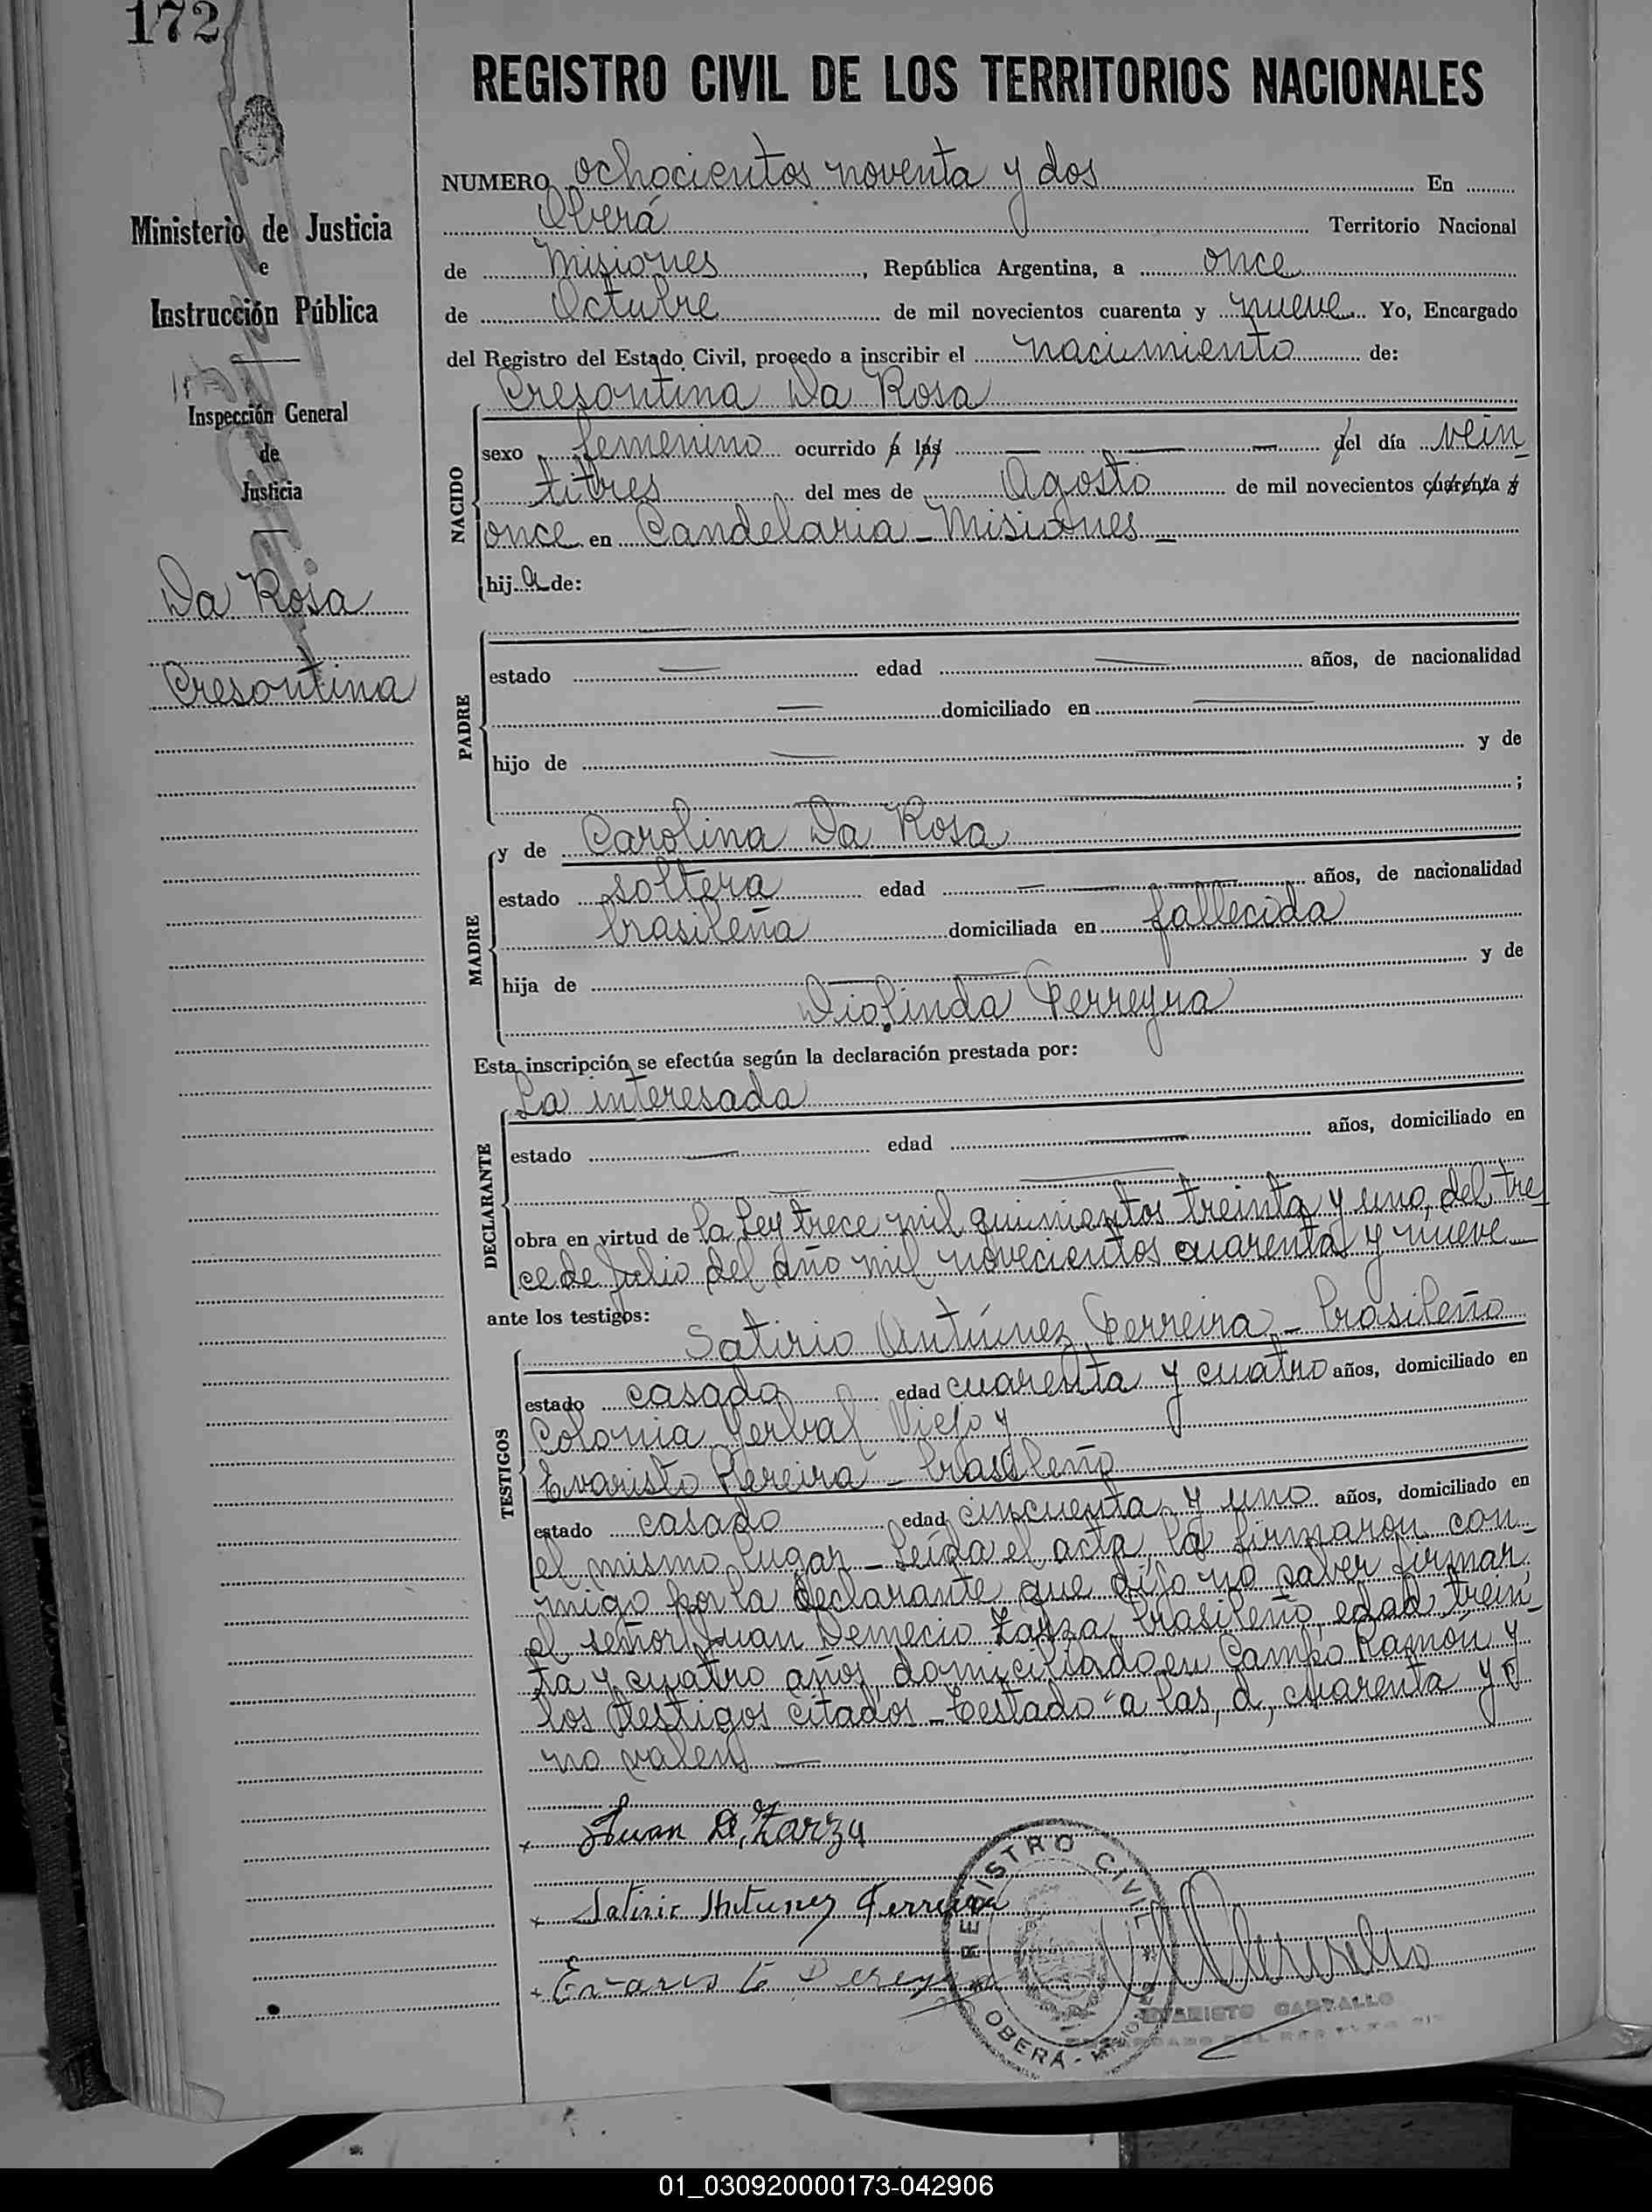 172
REGISTRO CIVIL DE LOS TERRITORIOS NACIONALES
NUMERO ochocientos noventa y dos En
Oberá Territorio Nacional
de Misiones, República Argentina, a once
de Octubre de mil novecientos cuarenta y nueve Yo, Encargado
del Registro del Estado Civil, procedo a inscribir el nacimiento de:
Ministerio de Justicia
e
Instrucción Pública
Inspección General
de
Justicia
Da Rosa
Cresontina
NACIDO
Cresontina Da Rosa
sexo femenino ocurrido a las — — — del día vein_
titres del mes de Agosto de mil novecientos cuarenta y
once en Candelaria - Misiones —
hija de:
PADRE
estado — edad — años, de nacionalidad
— domiciliado en —
hijo de — y de
;
MADRE
y de Carolina Da Rosa
estado soltera edad — años, de nacionalidad
brasileña domiciliada en fallecida
hija de — y de
Diolinda Ferreyra
Esta inscripción se efectúa según la declaración prestada por:
DECLARANTE
La interesada
estado — edad — años, domiciliado en
obra en virtud de la Ley trece mil quinientos treinta y uno, del tre_
ce de Julio del año mil novecientos cuarenta y nueve —
ante los testigos:
TESTIGOS
Satirio Antúnez Ferreira - brasileño
estado casado edad cuarenta y cuatro años, domiciliado en
Colonia Yerbal Viejo y
Evaristo Pereira - brasileño
estado casado edad cincuenta y uno años, domiciliado en
el mismo lugar - Leída el acta, la firmaron con_
migo por la declarante que dijo no saber firmar
el señor Juan Demecio Zarza, brasileño, edad trein_
ta y cuatro años, domiciliado en Campo Ramón y
los testigos citados - Testado "a las, d, cuarenta y
no valen —
x Juan D. Zarza
x Satirio Antunez Ferreira
x Evaristo Pereyra
REGISTRO CIVIL
OBERÁ - MISIONES
EVARISTO CARVALLO
01_030920000173-042906